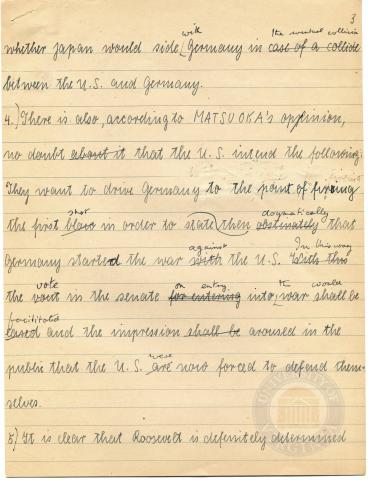 3
with the eventual collision
whether Japan would side Germany in case of a collide
between the U.S. and Germany.
4.) There is also, according to MATSUOKA's oppinion,
no doubt about it that the U.S. intend the following:
They want to drive Germany to the point of firing
shot dogmatically
the first blow in order to state then obstinately that
against In this way
Germany started the war with the U.S. With this
vote on entry the would
the vout in the senate for entering into war shall be
facilitated
eased and the impression shall be aroused in the
were
public that the U.S. are now forced to defend them-
selves.
5.) It is clear that Roosevelt is definitely determined
UNIVERSITY OF VIRGINIA